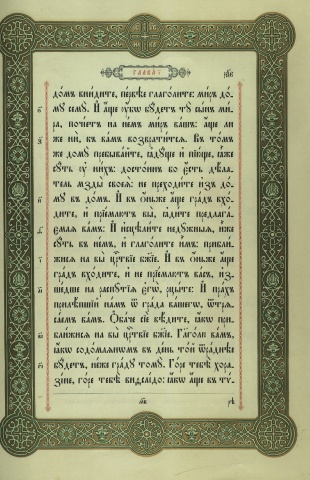 ГЛАВА І҃
домъ внидите, первѣе глаголите: миръ до-
мꙋ семꙋ. И҆ а҆ще ᲂу҆бо бꙋдетъ тꙋ сынъ ми-
ра, почїетъ на немъ миръ вашъ: а҆ще ли
же ни, къ вамъ возвратитсѧ. Въ том-
же домꙋ пребывайте, ꙗ҆дꙋще и҆ пїюще, ꙗ҆же
сꙋть ᲂу҆ нихъ: достоинъ бо є҆сть дѣла-
тель мзды своеѧ̀: не преходите и҆зъ до-
мꙋ въ домъ. И҆ въ ѻ҆ньже а҆ще градъ вхо-
дите, и҆ прїемлютъ вы̀, ꙗ҆дите предлага-
ємаѧ вамъ: И҆ и҆сцѣлите недꙋжныѧ, и҆же
сꙋть въ немъ, и҆ глаголите и҆мъ: прибли-
жисѧ на вы̀ црⷭ҇твїе бж҃їе. И҆ въ ѻ҆ньже а҆ще
градъ входите, и҆ не прїемлютъ васъ, и҆з-
шедше на распꙋтїѧ є҆гѡ̀, рцыте: И҆ прахъ
прилѣпшїй намъ ѿ града вашегѡ, ѿтрѧ-
саемъ вамъ. Ѻ҆баче сїе вѣдите, ꙗ҆кѡ при-
ближисѧ на вы̀ црⷭ҇твїе бж҃їе. Глаголю вамъ,
ꙗ҆кѡ содомлѧнѡмъ въ день той ѿраднѣе
бꙋдетъ, неже градꙋ томꙋ. Горе тебѣ̀ хора-
зїне, горе тебѣ̀ виѳсаїдо: ꙗ҆кѡ а҆ще въ тѵ-